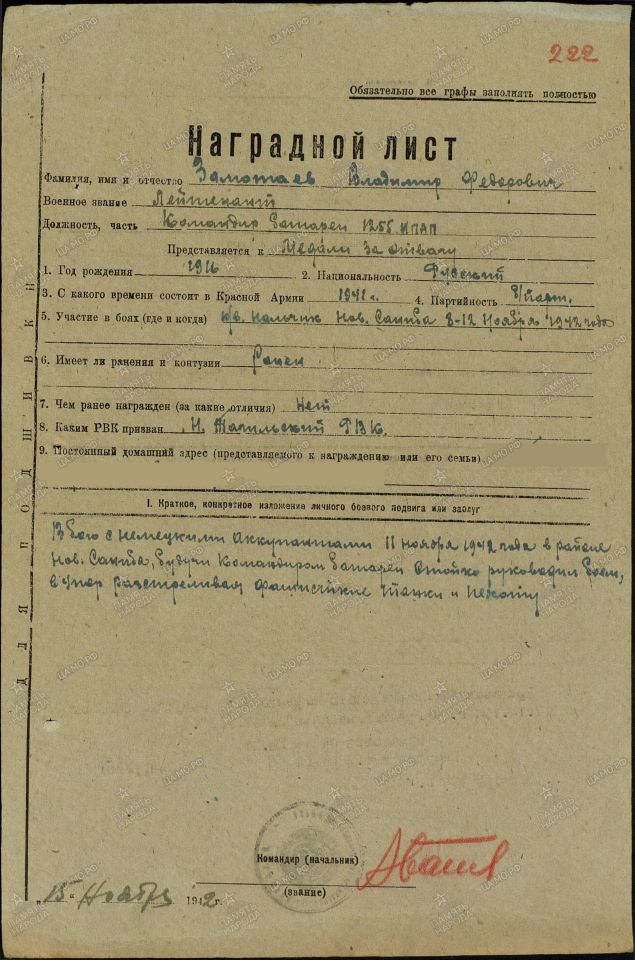 222
Обязательно все графы заполнять полностью
Наградной лист
Фамилия, имя и отчество Замотаев Владимир Федорович
Военное звание Лейтенант
Должность, часть Командир батареи 1255 ИПАП
Представляется к Медали За отвагу
1. Год рождения 1916 2. Национальность Русский
3. С какого времени состоит в Красной Армии 1941 г. 4. Партийность б/парт.
5. Участие в боях (где и когда) Нальчик Нов. Саниба 8-12 Ноября 1942 года
6. Имеет ли ранения и контузии Ранен
7. Чем ранее награжден (за какие отличия) Нет
8. Каким РВК призван Н. Тагильский ГВК.
9. Постоянный домашний адрес (представляемого к награждению или его семьи)
I. Краткое, конкретное изложение личного боевого подвига или заслуг
В бою с немецкими аккупантами 11 ноября 1942 года в районе
Нов. Саниба, будучи Командиром батареи стойко руководил боем,
в упор расстреливая фашистские танки и пехоту
ДЛЯ ПОДШИВКИ
Командир (начальник)
(звание)
„15" Ноября 1942 г.
ПАМЯТЬ НАРОДА
ЦАМО.РФ